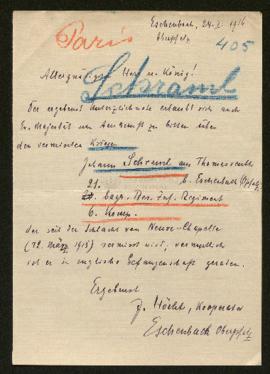 Eschenbach, 24. X. 1916
Oberpfalz
Paris
405
Allergnä Herr u. König!
Schraml
Der ergebenst Unterzeichnete erlaubt sich auch
Ew. Majestät um Auskunft zu bitten über
den vermissten Krieger
Johann Schraml aus Thomasreuth
21. b. Eschenbach Opfalz
bayr. Res. Inf. Regiment
6. Komp.
der seit der Schlacht von Neuve-Chapelle
(12. März 1915) vermisst wird, vermutlich
ist er in englische Gefangenschaft geraten.
Ergebenst
J. Höcht, Kooperator
Eschenbach Oberpfalz